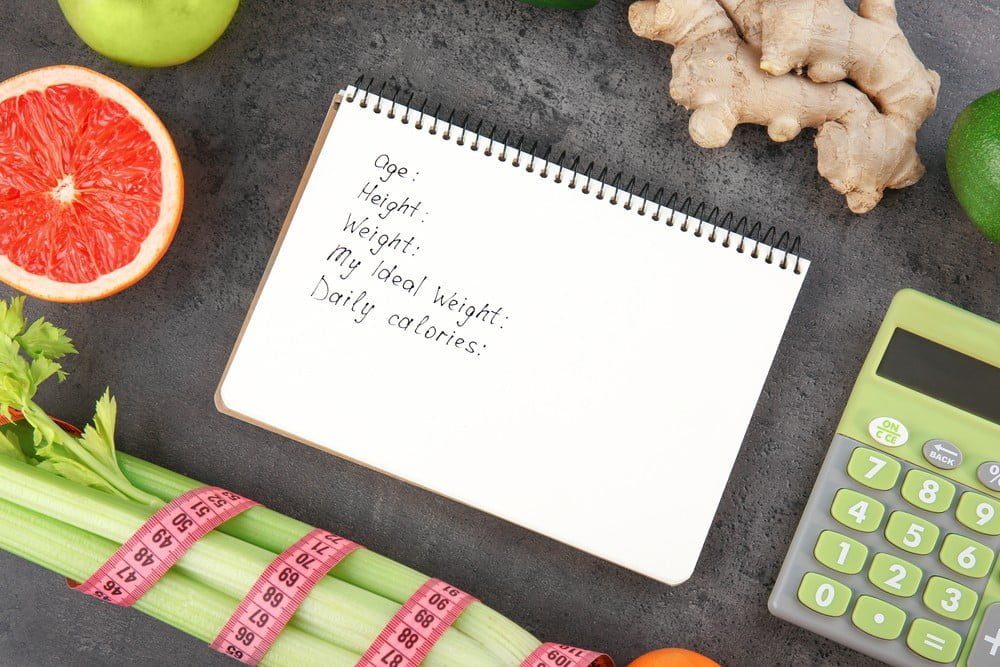 Age:
Height:
Weight:
My Ideal Weight:
Daily calories:
ON
C CE
BACK
%
7 8 9
4 5 6
1 2 3
0 • =
+
46 47 48 49 50 51 52
67 68 69 70 71
87 88 89 90
109